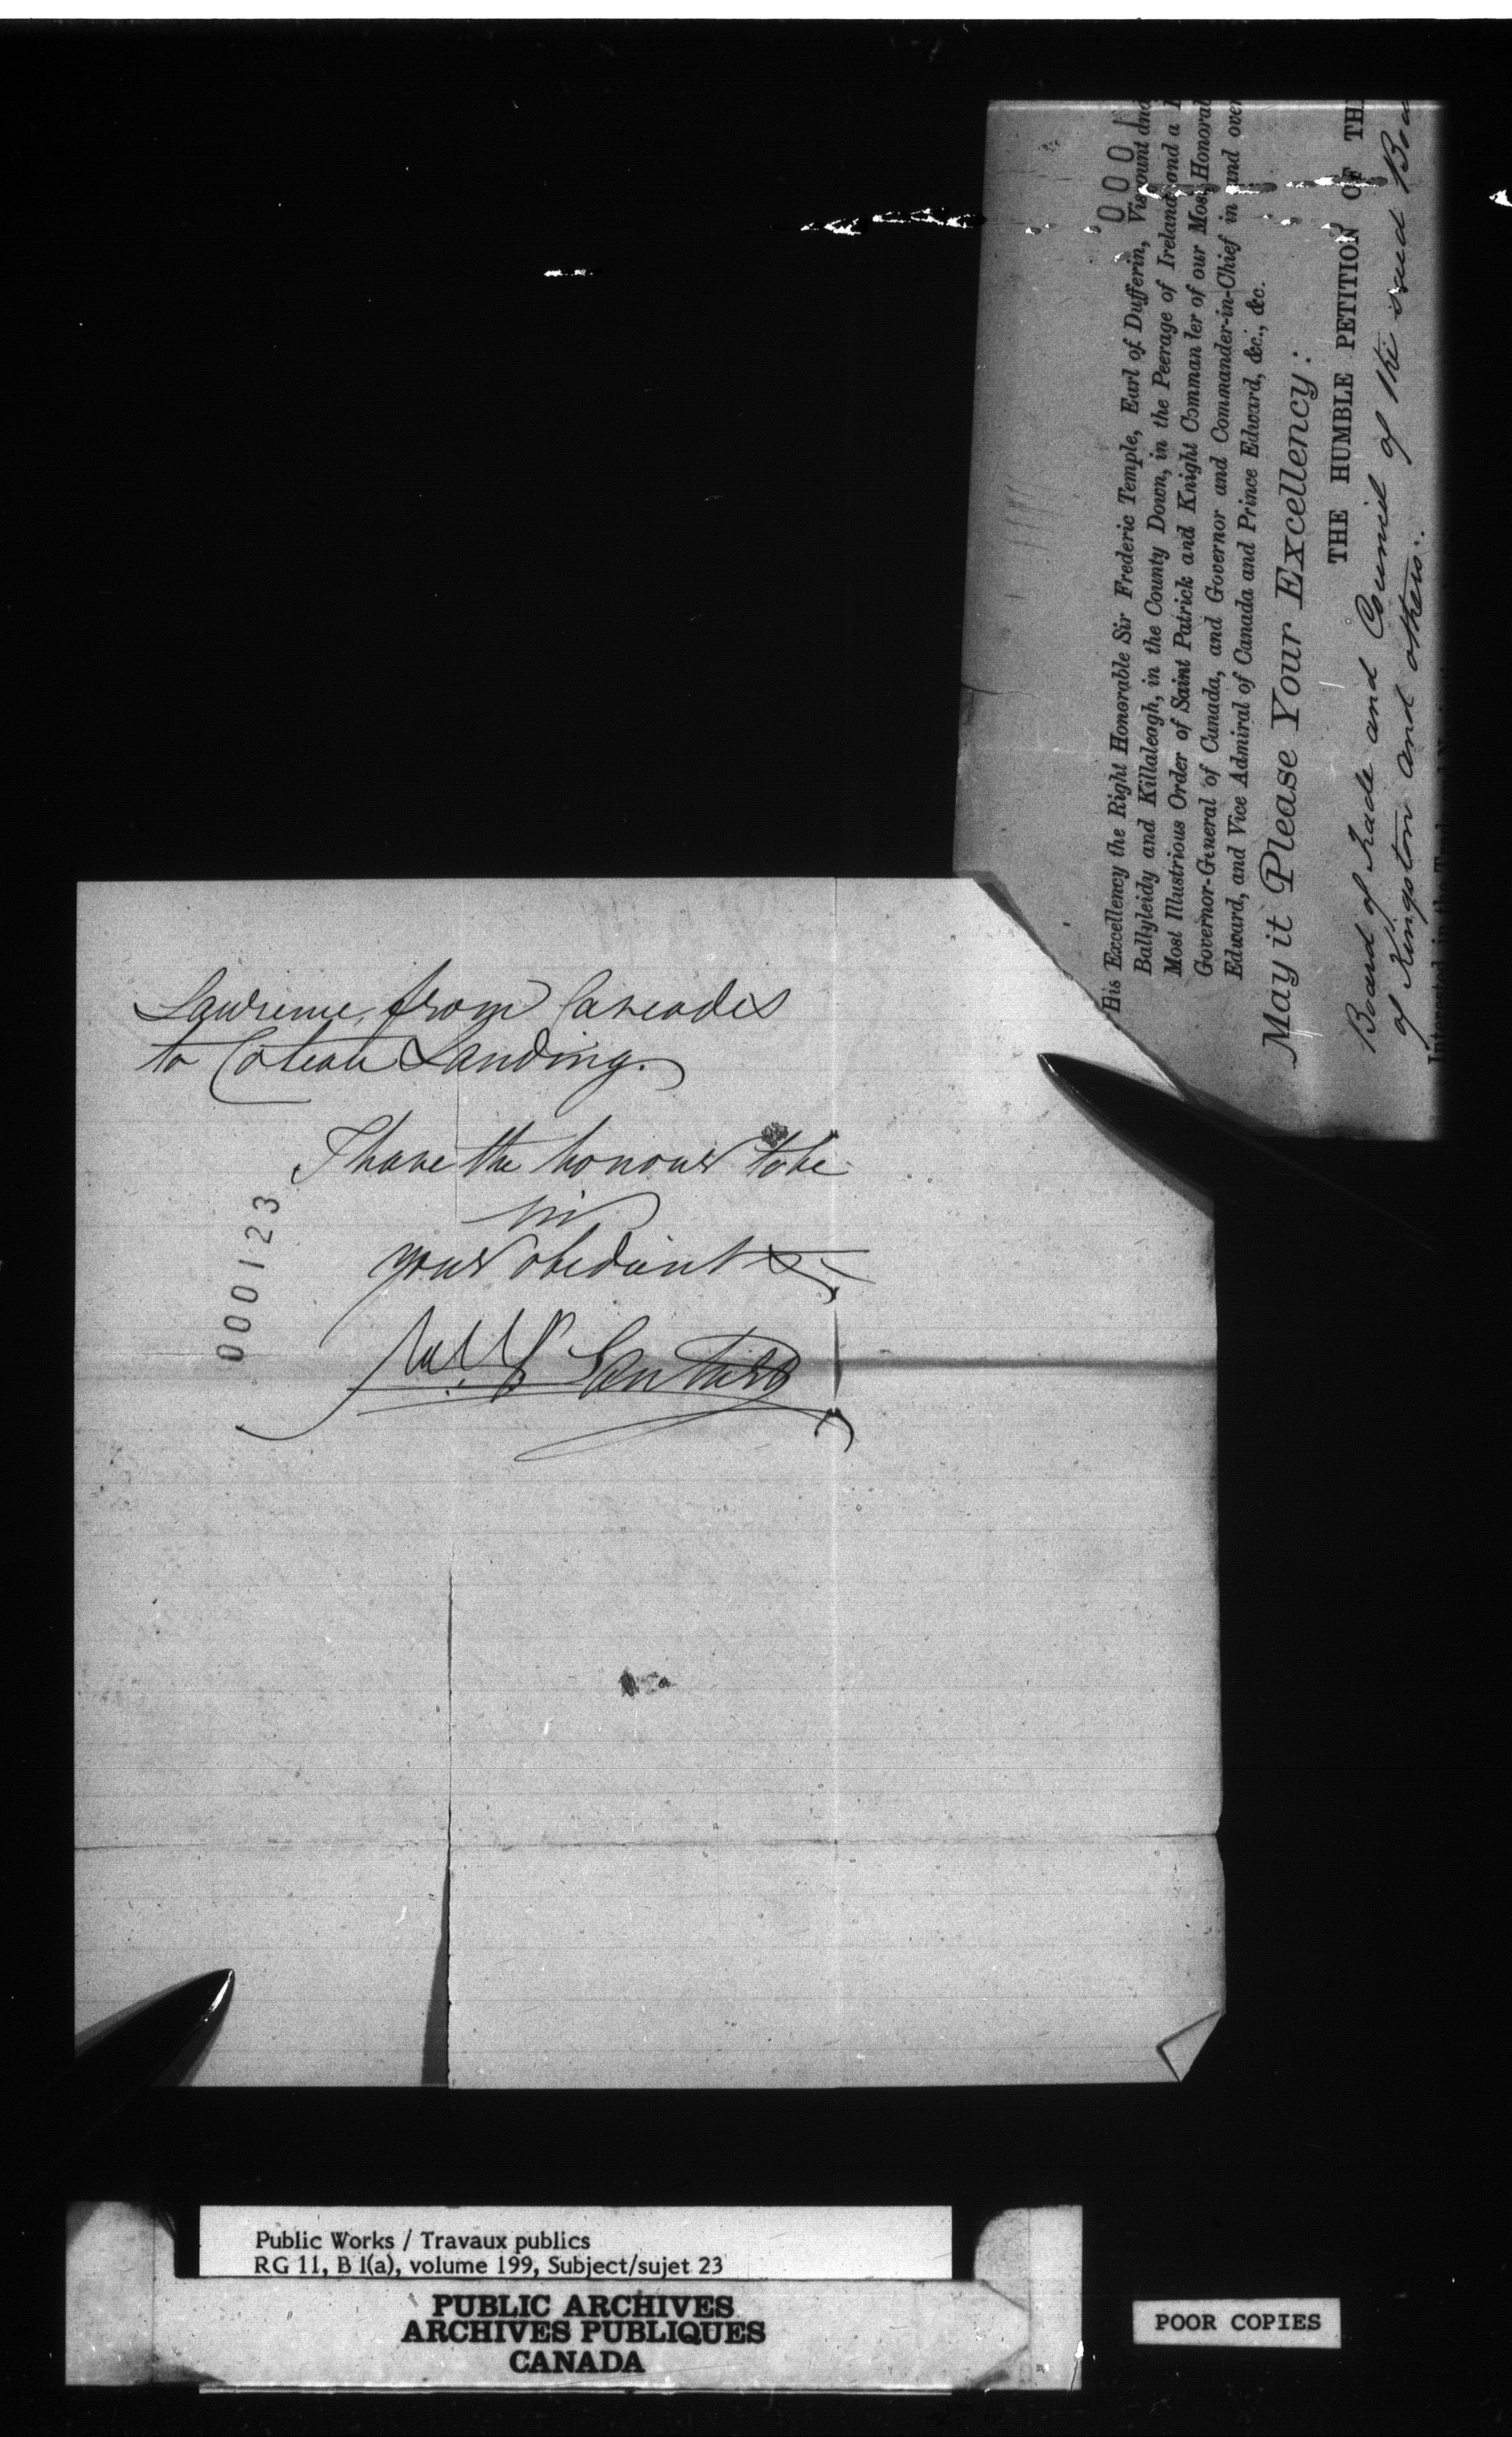 Lawrence, from Cascades
to Coteau Landing.
I have the honour to be
Sir
your obedient S
000123
0001
His Excellency the Right Honorable Sir Frederic Temple, Earl of Dufferin, Viscount and
Ballyleidy and Killaleagh, in the County Down, in the Peerage of Ireland and a
Most Illustrious Order of Saint Patrick and Knight Commander of our Most Honoral
Governor-General of Canada, and Governor and Commander-in-Chief in and over
Edward, and Vice Admiral of Canada and Prince Edward, &c., &c.
May it Please Your Excellency:
THE HUMBLE PETITION OF TH
Board of Trade and Council of the said Boa
of Kingston and others.
Interested in the
Public Works / Travaux publics
RG 11, B 1(a), volume 199, Subject/sujet 23
PUBLIC ARCHIVES
ARCHIVES PUBLIQUES
CANADA
POOR COPIES